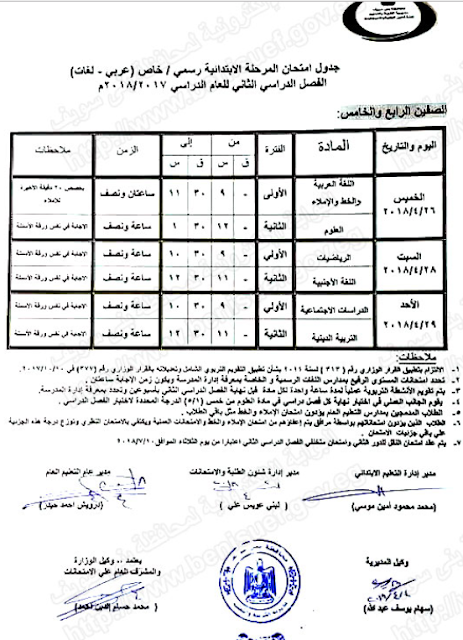 جدول امتحان المرحلة الابتدائية رسمي / خاص (عربي - لغات)
الفصل الدراسي الثاني للعام الدراسي ٢٠١٨/٢٠١٧م
الصفين الرابع والخامس:
اليوم والتاريخ المادة الفترة من إلى الزمن ملاحظات
ق س ق س
الخميس ٢٠١٨/٤/٢٦ اللغة العربية والخط والإملاء الأولى - ٩ ٣٠ ١١ ساعتان ونصف يخصص ٢٠ دقيقة الاخيرة للإملاء
العلوم الثانية - ١٢ ٣٠ ١ ساعة ونصف الاجابة في نفس ورقة الأسئلة
السبت ٢٠١٨/٤/٢٨ الرياضيات الأولي - ٩ ٣٠ ١٠ ساعة ونصف الاجابة في نفس ورقة الأسئلة
اللغة الأجنبية الثانية - ١١ ٣٠ ١٢ ساعة ونصف الاجابة في نفس ورقة الأسئلة
الأحد ٢٠١٨/٤/٢٩ الدراسات الاجتماعية الأولي - ٩ ٣٠ ١٠ ساعة ونصف الاجابة في نفس ورقة الأسئلة
التربية الدينية الثانية - ١١ ٣٠ ١٢ ساعة ونصف الاجابة في نفس ورقة الأسئلة
ملاحظات:
١- الالتزام بتطبيق القرار الوزاري رقم (٣١٣) لسنة ٢٠١١ بشأن تطبيق التقويم التربوي الشامل وتعديلاته بالقرار الوزاري رقم (٣٧٧) في ٢٠١٧/١٠/١٠
٢- تحدد امتحانات المستوى الرفيع بمدارس اللغات الرسمية و الخاصة بمعرفة إدارة المدرسة ويكون زمن الإجابة ساعتان.
٣- يتم تقويم الأنشطة التربوية عملياً لمدة ساعة واحدة لكل مادة قبل نهاية الفصل الدراسي الثاني بأسبوعين وتحدد بمعرفة إدارة المدرسة.
٤- يقوم الجانب العملي في اختبار نهاية كل فصل دراسي في مادة العلوم من خمس (١/٥) الدرجة المحددة لاختبار الفصل الدراسي.
٥- الطلاب المدمجين بمدارس التعليم العام يؤدون امتحان الإملاء والخط مثل باقي الطلاب.
٦- الطلاب الذين يؤدون امتحاناتهم بواسطة مرافق يتم إعفاءهم من امتحان الإملاء والخط والامتحانات العملية ويكتفى بالامتحان النظري وتوزع درجة هذه الجزئية على باقي جزئيات الامتحان.
٧- يتم عقد امتحان النقل للدور الثاني وامتحان متخلفي الفصل الدراسي الثاني اعتبارا من يوم الثلاثاء الموافق ٢٠١٨/٧/١٠.
مدير إدارة التعليم الابتدائي
(محمد محمود أمين موسي)
مدير إدارة شئون الطلبة والامتحانات
(لبني عويس علي)
مدير عام التعليم العام
(درويش احمد حيدر)
وكيل المديرية
(سهام يوسف عبد الله)
يعتمد ،، وكيل الوزارة
والمشرف العام علي الامتحانات